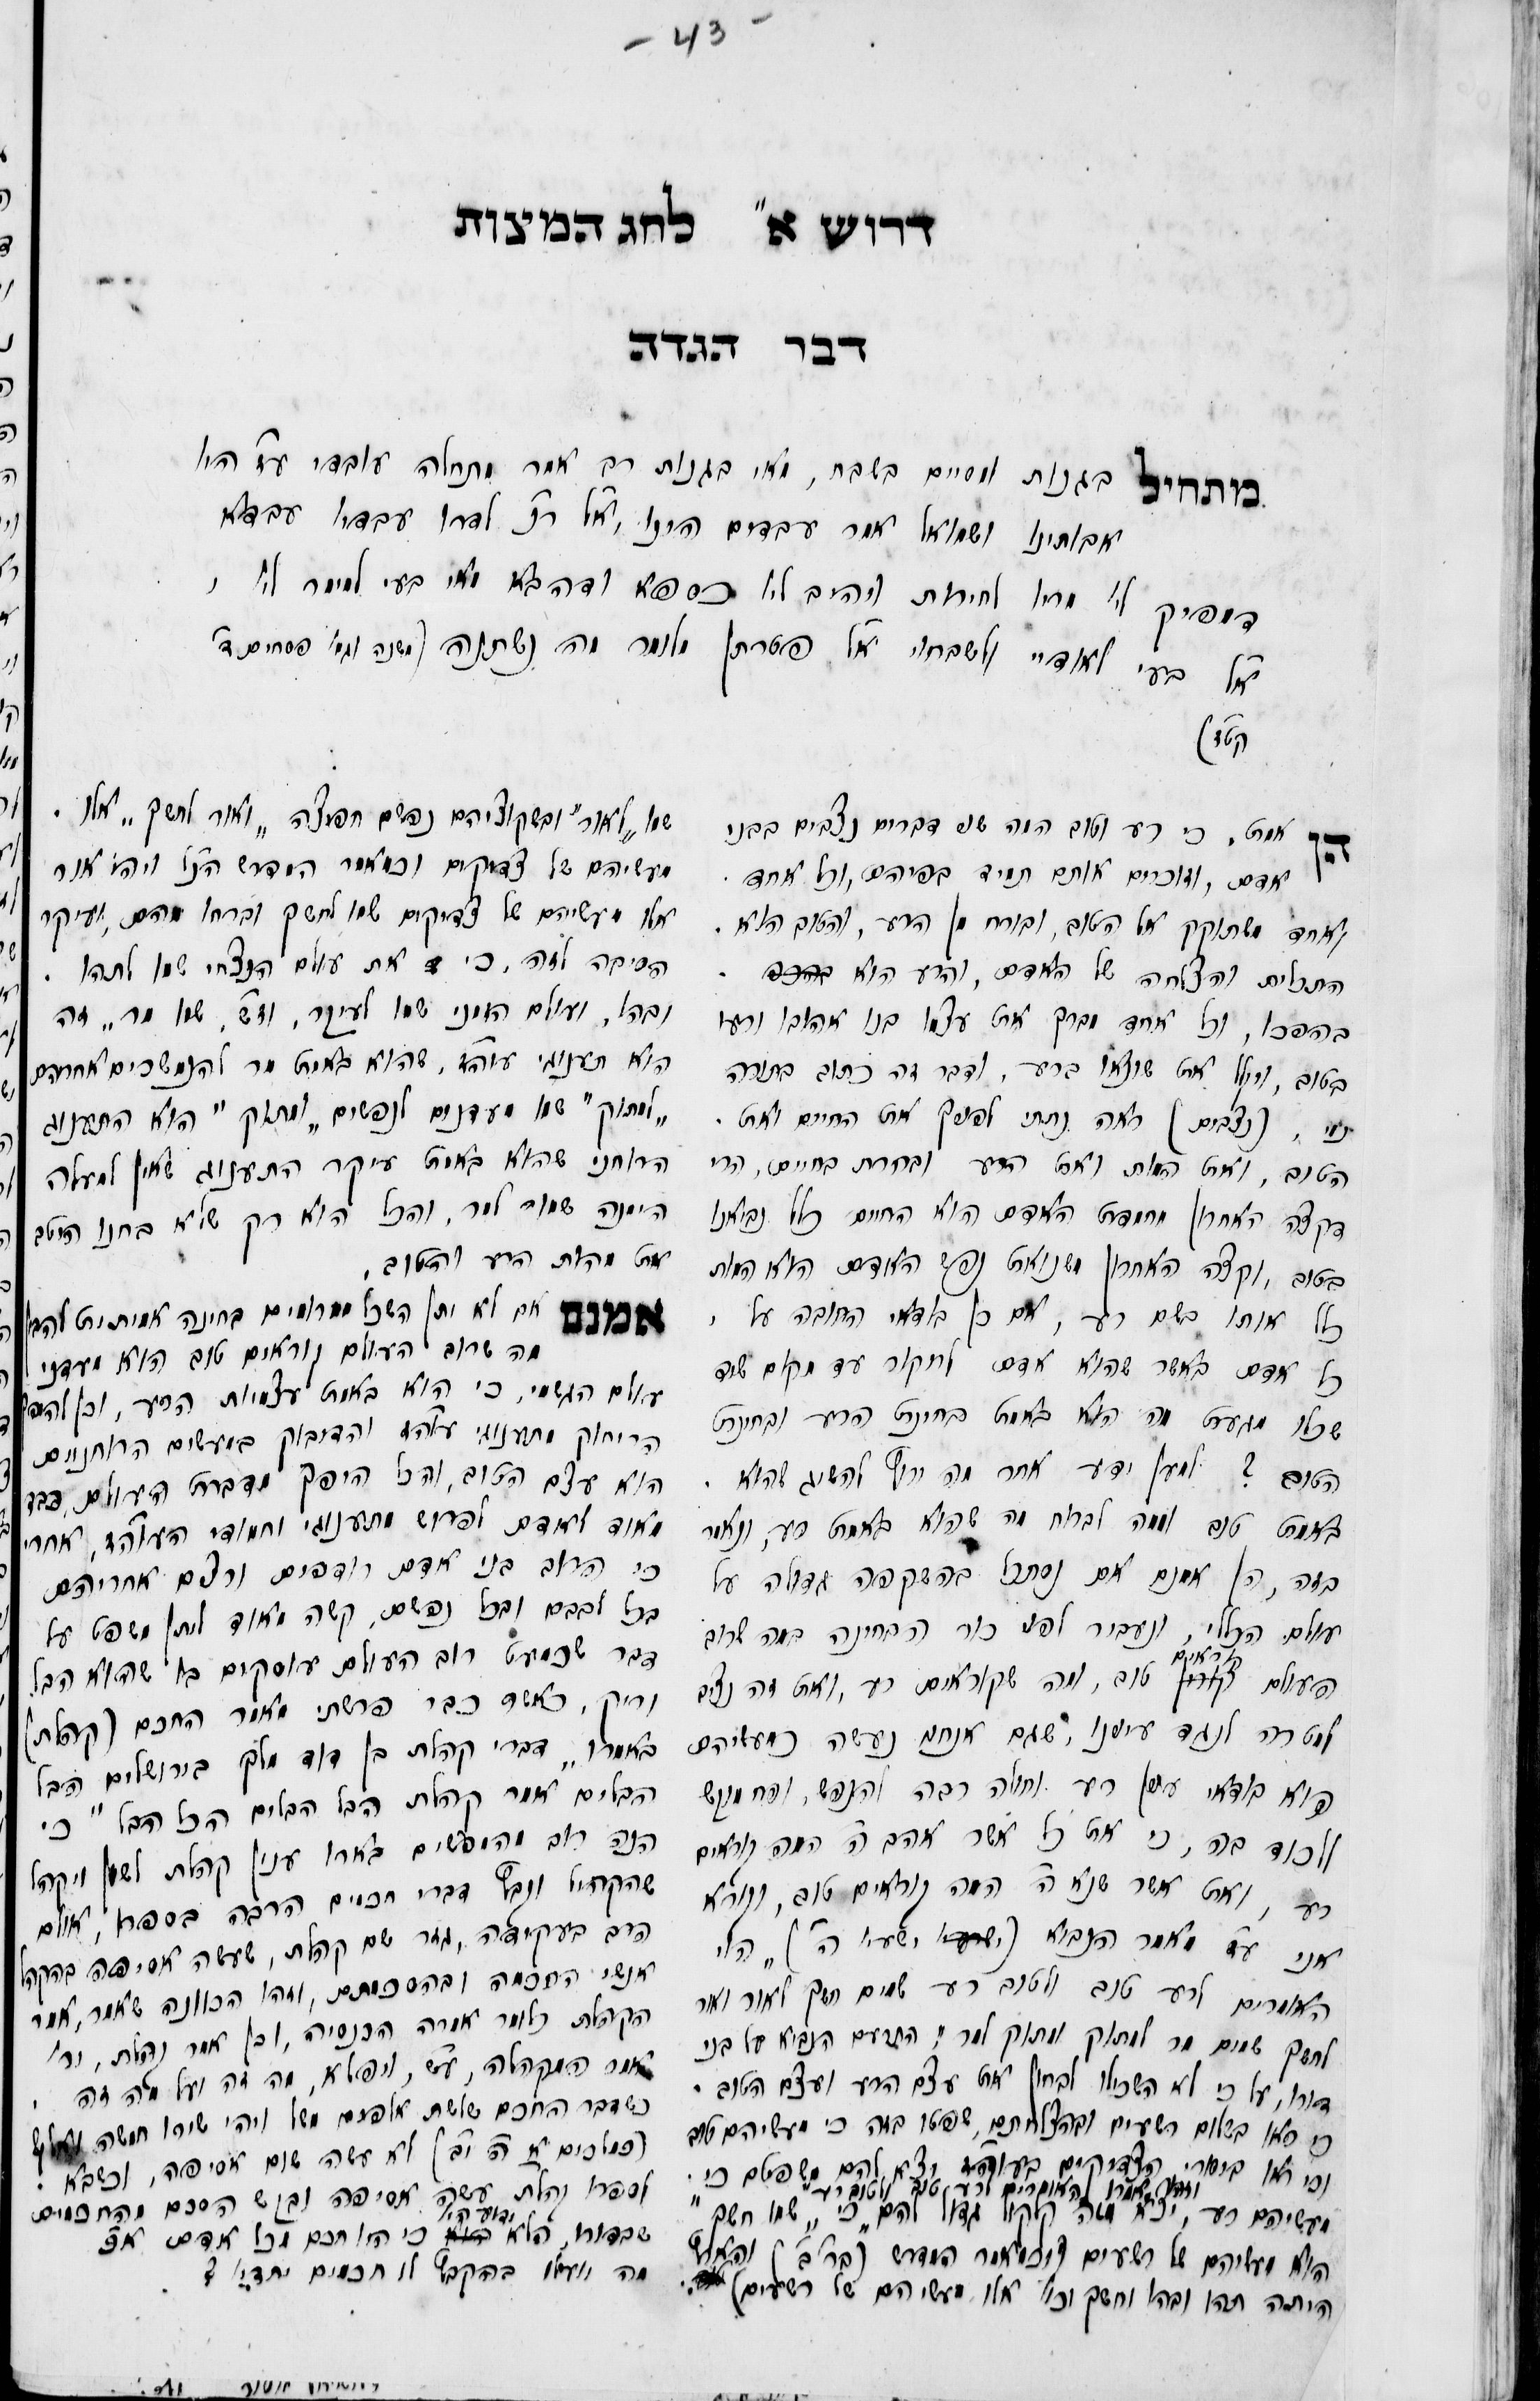 - 43 -
דרוש א" לחג המצות
דבר הגדה
מתחיל בגנות ומסיים בשבח, מאי בגנות רב אמר מתחלה עובדי ע"ז היו
אבותינו ושמואל אמר עבדים היינו, א"ל ר"נ לדרו עבדיו עבדא
דמפיק לי' מריו לחירות ויהיב לי' כספא ודהבא מאי בעי למימר לי' ,
א"ל בעי לאודיי ולשבחוי א"ל פטרתן מלומר מה נשתנה (משנה וגמ' פסחים ד'
קט"ז)
הן אמת, כי רע וטוב המה שני דברים נצבים בבני
אדם, וזוכרים אותם תמיד בפיהם, וכל אחד
ואחד משתוקק אל הטוב, ובורח מן הרע, והטוב הוא
התכלית והצלחה של האדם, והרע הוא
בהפכו, וכל אחד מברך את עצמו בנו אהובו ורעו
בטוב, ויקלל את שונאו ברע, ודבר זה כתוב בתורה
(נצבים) ראה נתתי לפניך את החיים ואת
הטוב, ואת המות ואת הרע ובחרת בחיים, הרי
דקצה האחרון מחמדת האדם הוא החיים כלל נביאנו
בטוב, וקצה האחרון משנואת נפש האדם הוא המות
כלל אותו בשם רע, אם כן בודאי החובה על
כל אדם באשר שהוא אדם לחקור עד מקום שיד
שכלו מגעת מה הוא באמת בחינת הרע ובחינת
הטוב ? למען ידע אחר מה ירוץ להשיג שהוא
באמת טוב וממה לברוח מה שהוא באמת רע, ונאמר
בזה, הן אמנם אם נסתכל בהשקפה גדולה על
עולם הכללי, ונעביר לפני כור הבחינה במה שרוב
העולם קוראים טוב, ומה שקוראים רע, ואת זה נציב
למטרה לנגד עינינו, שגם אנחנו נעשה כמעשיהם
הוא בודאי ענין רע וחולה רבה להנפש, ופח מוקש
ולכוד בה, כי את כל אשר אהב ה' המה קוראים
רע, ואת אשר שנא ה' המה קוראים טוב, ונקרא
אני ע"ז מאמר הנביא (ישעי' ה') "הוי
האומרים לרע טוב ולטוב רע שמים חשך לאור ואור
לחשך שמים מר למתוק ומתוק למר", התרעם הנביא על בני
דורו, על כי לא השכילו לבחון את עצם הרע ועצם הטוב
כי ראו בשלום רשעים ובהצלחתם, שפטו בזה כי מעשיהם טוב
וכי ראו ביסורי הצדיקים בעוה"ז יצא להם משפטם כי
וזהו אמרו האומרים לרע טוב ולטוב רע
מעשיהם רע, יצא מזה קלקול גדול להם, כי "שמו חשך"
הוא מעשיהם של רשעים (וכמאמר המדרש (ב"ר ב') והארץ
היתה תהו ובהו וחשך וכו' אלו מעשיהם של רשעים)
שמו "לאור" ובשקוציהם נפשם חפצה "ואור לחשך" אלו
מעשיהם של צדיקים וכמאמר המדרש הנ"ל ויהי אור
אלו מעשיהם של צדיקים שמו לחשך וברחו מהם, ועיקר
הסיבה לזה, כי את עולם הנצחי שמו לתהו
ובהו, ועולם הזמני שמו לעיקר, וז"ש, שמו מר, זה
הוא תענוגי עוה"ז, שהוא באמת מר להנמשכים אחריהם
"למתוק" שמו מעדנים לנפשים, "ומתוק" הוא התענוג
הרוחני שהוא באמת עיקר התענוג שאין למעלה
הימנה שמוהו למר, והכל הוא רק שלא בחנו היטב
את מהות הרע והטוב.
אמנם אם לא יתן השכל ממרומים בחינה אמיתית להבין
מה שרוב העולם קוראים טוב הוא מעדני
עולם הגשמי, כי הוא באמת עצמיות הרע, וכן להיפך
הריחוק מתענוגי עוה"ז והדיבוק במעשים הרוחניים
הוא עצם הטוב, והכל היפך מדברת העולם, כבד
מאוד לאדם לפרוש מתענוגי וחמודי העוה"ז, אחרי
כי הרוב בני אדם רודפים ורצים אחריהם
בכל לבבם ובכל נפשם, קשה מאוד ליתן משפט על
דבר שכמעט רוב העולם עוסקים בו שהוא הבל
וריק, כאשר כבר פרשתי מאמר החכם (קהלת)
באמרו "דברי קהלת בן דוד מלך בירושלים הבל
הבלים אמר קהלת הבל הבלים הכל הבל" כי
הנה רוב המפרשים בארו ענין קהלת לשון ויקהל
שהקהיל וקבץ דברי חכמים הרבה בספרו, אולם
הרב בעקידה, גזר שם קהלת, שעשה אסיפה בהקהל
אנשי החכמה ובהסכמתם, וזהו הכוונה שאמר, אמר
הקהלת כלומר אמרה הכנסיה, וכן אמר קהלת, ור"ל
אמר המקהלה, ע"ש, ויפלא, מה זה ועל מה זה
כשדבר החכם שלשת אלפים משל ויהי שירו חמשה ואלף
(מלכים א' ה' י"ב) לא עשה שום אסיפה, וכשבא
לספרו קהלת עשה אסיפה ובקש הסכם מהחכמים
שבדורו, הלא ידוע הי' כי הי' חכם מכל אדם, א"כ
מה יועילו בהקבץ לו חכמים יחדיו ?